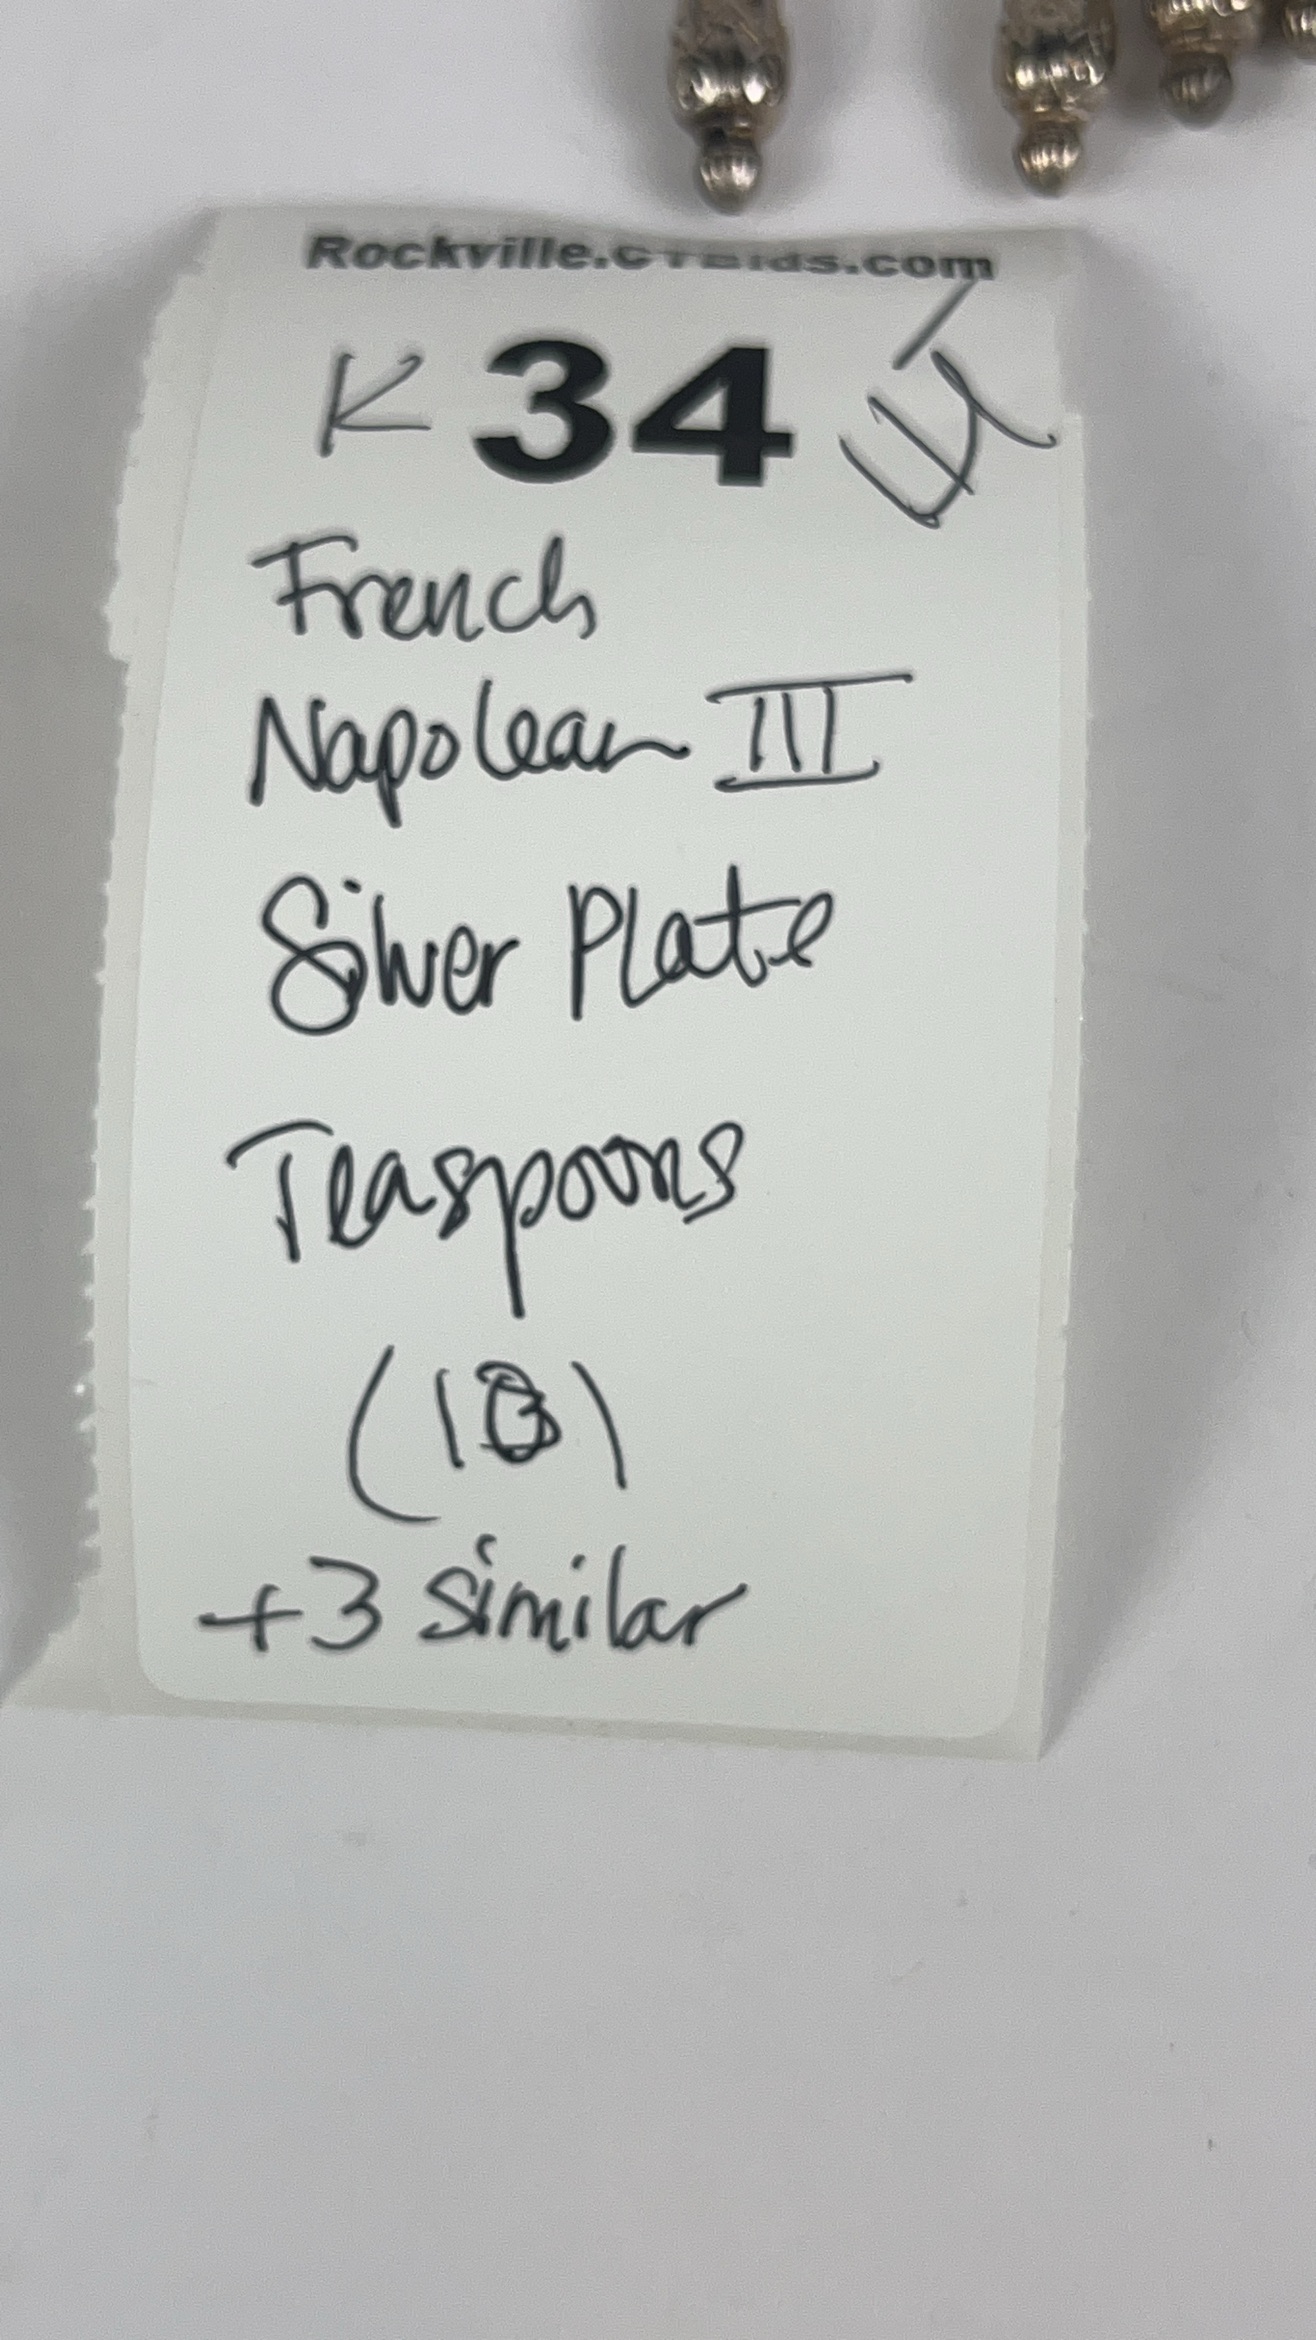 Rockville.CTBids.com
K 34
French
Napolean III
Silver Plate
Teaspoons
+3 similar